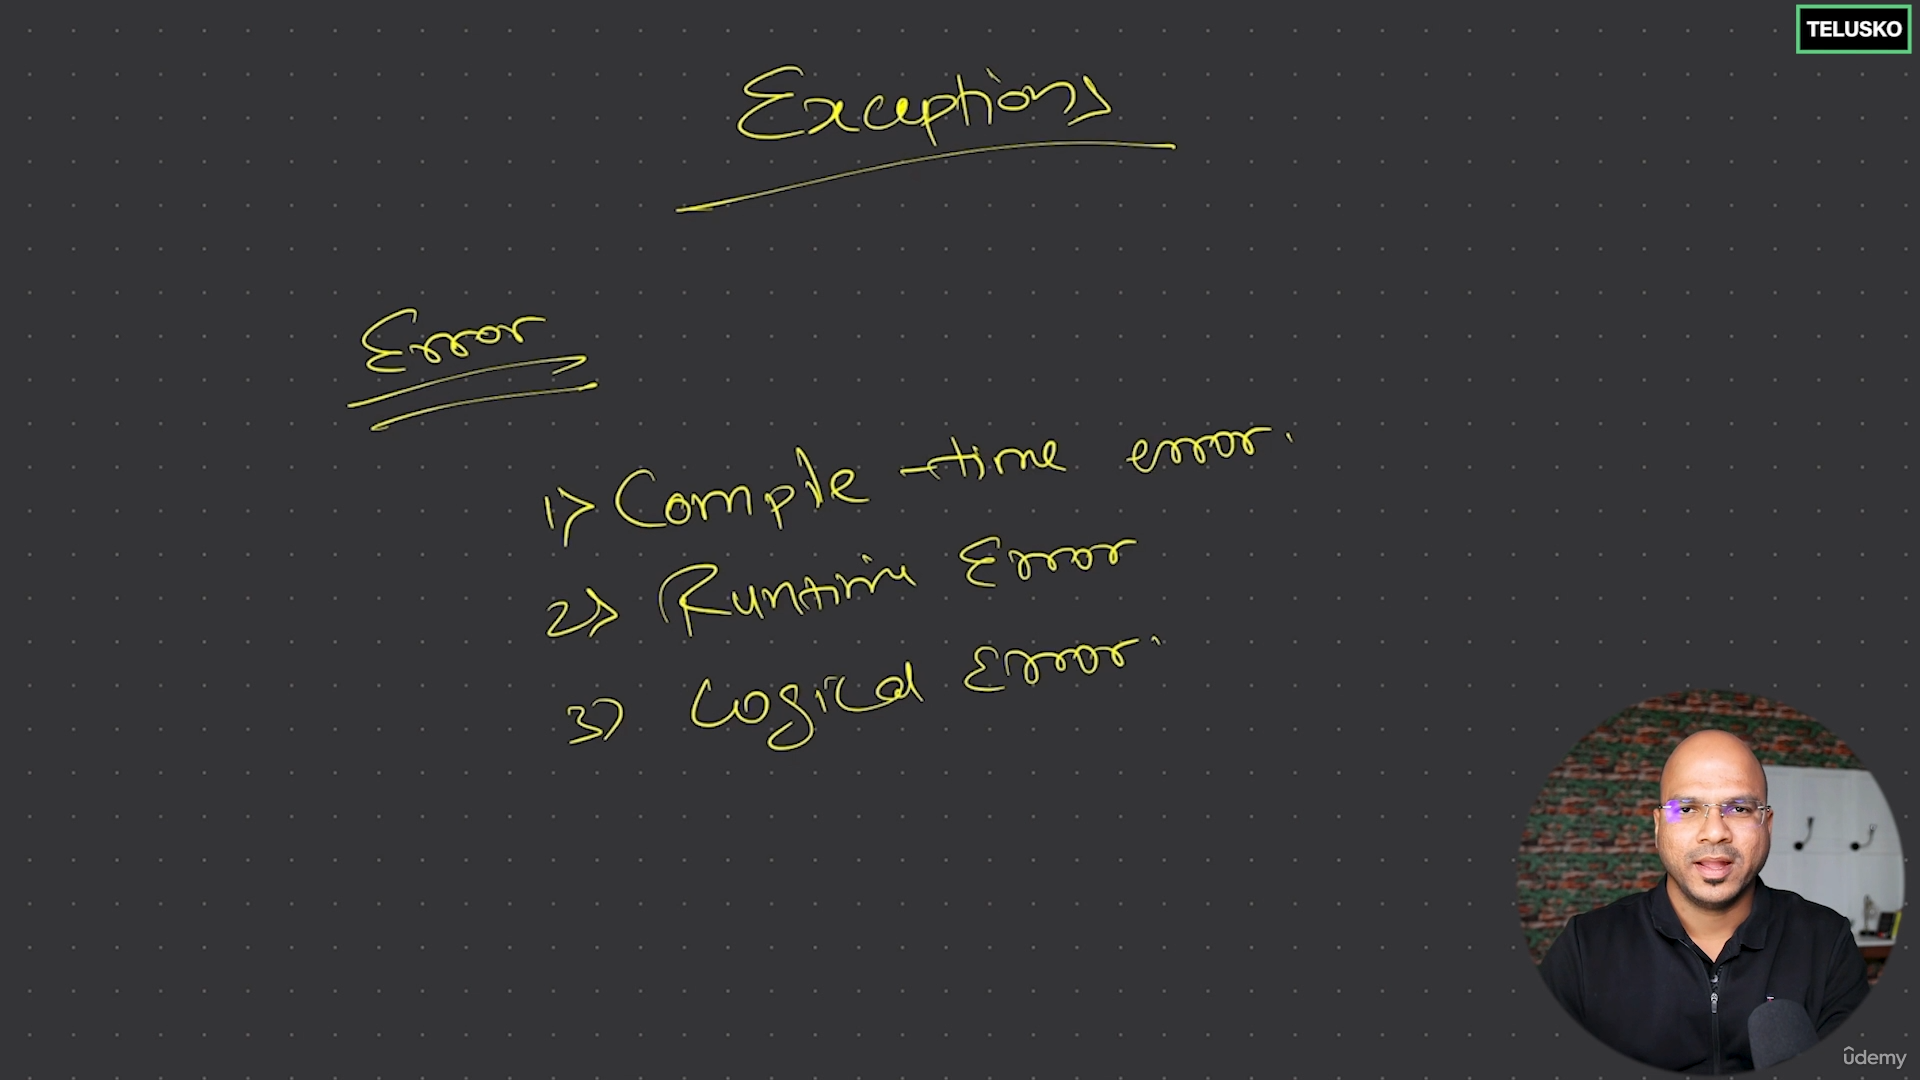 TELUSKO
Exceptions
Error
1) Compile-time error.
2) Runtime Error
3) Logical Error.
ûdemy